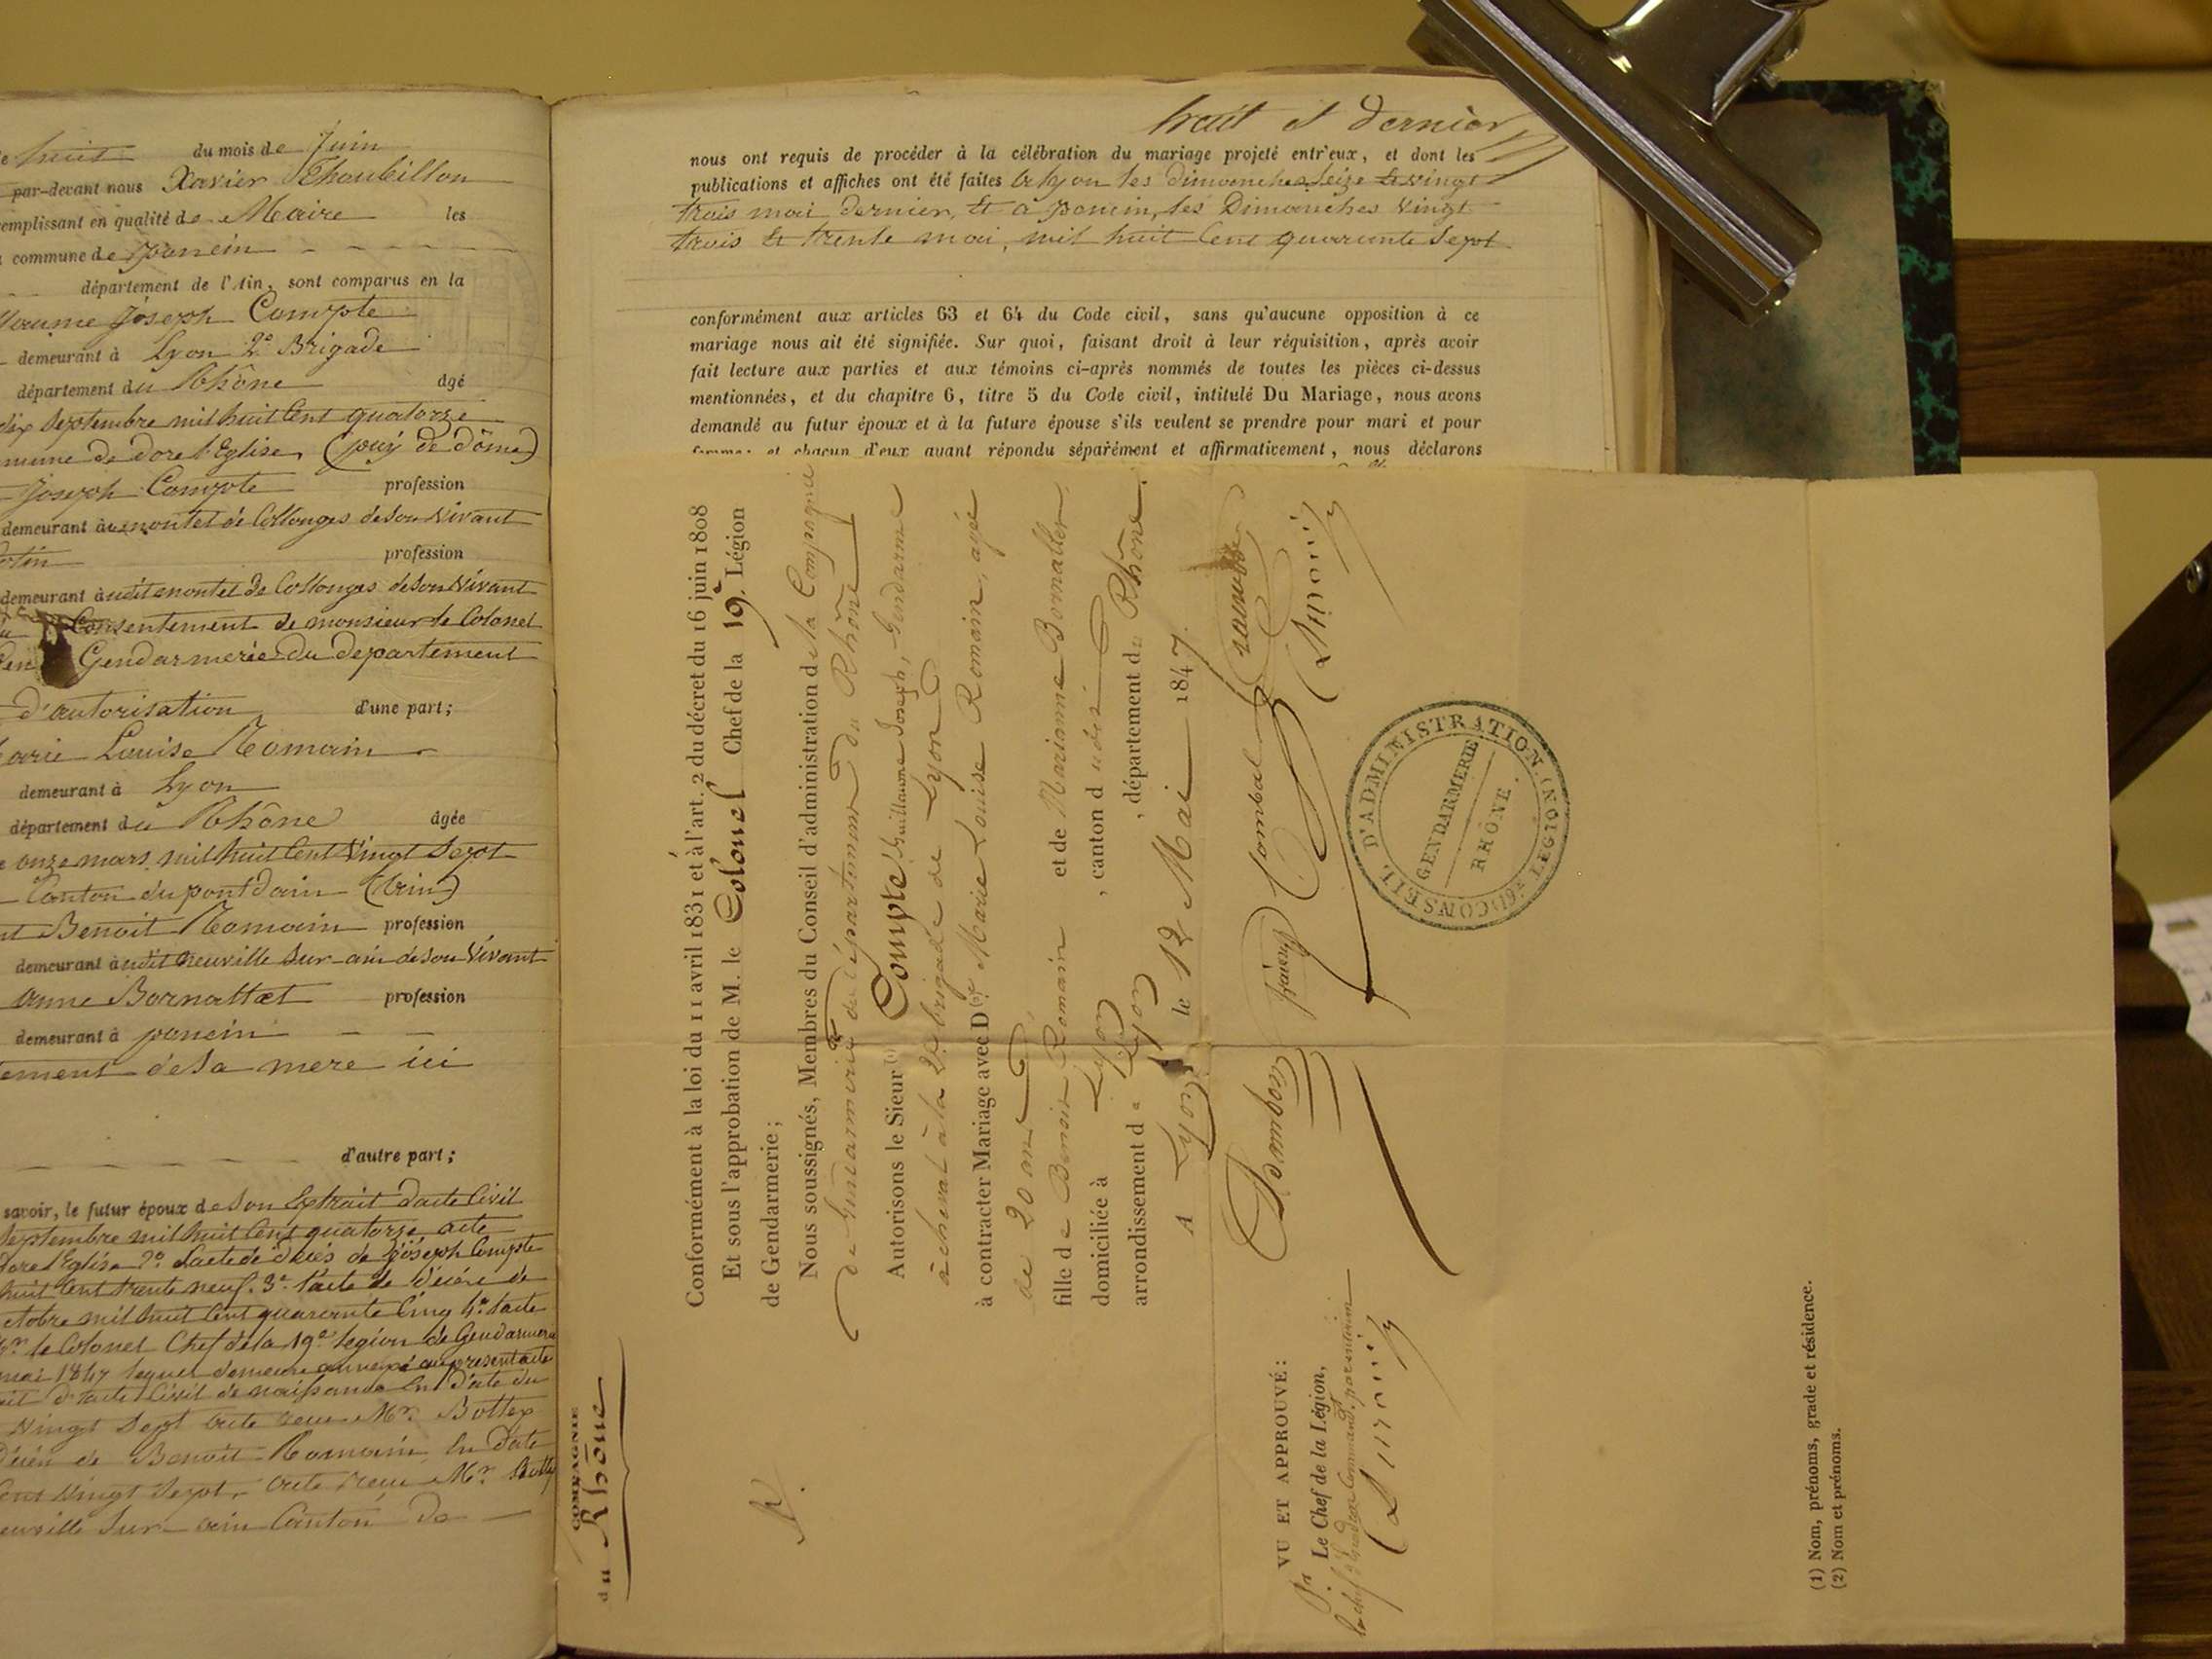 huit du mois de Juin
par-devant nous Xavier Thoubillon
remplissant en qualité de Maire les
commune de poncin
département de l'Ain, sont comparus en la
Joseph Compte
demeurant à Lyon 2e Brigade
département du Rhône âgé
dix Septembre mil huit Cent quatorze
de dore l'Eglise, (puy de dôme)
Joseph Compte profession
demeurant à montel de Collonges de son Vivant
profession
demeurant à udit montel de Collonges de son Vivant
Consentement de monsieur le Colonel
Gendarmerie du departement
d'autorisation d'une part;
Marie Louise Romain
demeurant à Lyon
département du Rhône âgée
onze mars mil huit Cent Vingt Sept
Canton du pont dain (ain)
Benoit Romain profession
demeurant à udit neuville Sur-ain de son Vivant
anne Bornattet profession
demeurant à poncin
de Sa mere ici
d'autre part;
savoir, le futur époux de Son Extrait d'acte Civil
Septembre mil huit Cent quatorze acte
l'Eglise 2° L'acte de décès de Joseph Compte
huit Cent trente neuf. 3° l'acte de Décès de
octobre mil huit Cent quarante Cinq 4° l'acte
Mr le Colonel Chef de la 19e légion de Gendarmerie
mai 1847 lequel demeure annexé au present acte
d'acte Civil de naissance En Date du
Vingt Sept acte reçu Mr Bottex
Décès de Benoit Romain, En Date
Cent Vingt Sept, acte reçu Mr
neuville Sur-ain Canton De
huit et dernier
nous ont requis de procéder à la célébration du mariage projeté entr'eux, et dont les
publications et affiches ont été faites à Lyon les dimanches Seize et vingt
trois mai dernier, Et à poncin, les Dimanches Vingt
trois Et trente mai, mil huit Cent quarante Sept
conformément aux articles 63 et 64 du Code civil, sans qu'aucune opposition à ce
mariage nous ait été signifiée. Sur quoi, faisant droit à leur réquisition, après avoir
fait lecture aux parties et aux témoins ci-après nommés de toutes les pièces ci-dessus
mentionnées, et du chapitre 6, titre 5 du Code civil, intitulé Du Mariage, nous avons
demandé au futur époux et à la future épouse s'ils veulent se prendre pour mari et pour
femme; et chacun d'eux ayant répondu séparément et affirmativement, nous déclarons
COMPAGNIE
du Rhône
Conformément à la loi du 11 avril 1831 et à l'art. 2 du décret du 16 juin 1808
Et sous l'approbation de M. le Colonel Chef de la 19e. Légion
de Gendarmerie;
Nous soussignés, Membres du Conseil d'administration de la Compagnie
de Gendarmerie du département du Rhône
Autorisons le Sieur (1) Compte, Guillaume Joseph, Gendarme
à cheval à la 2e brigade de Lyon
à contracter Mariage avec Dlle (2) Marie Louise Romain, agée
de 20 ans,
fille de Benoit Romain et de Marianne Bornattet,
domiciliée à Lyon, canton dudit
arrondissement de Lyon, département du Rhône.
A Lyon le 12 Mai 1847.
Combal
VU ET APPROUVÉ:
Le Chef de la Légion,
CONSEIL D'ADMINISTRATION. (19E LEGION)
GENDARMERIE
RHÔNE.
(1) Nom, prénoms, grade et résidence.
(2) Nom et prénoms.